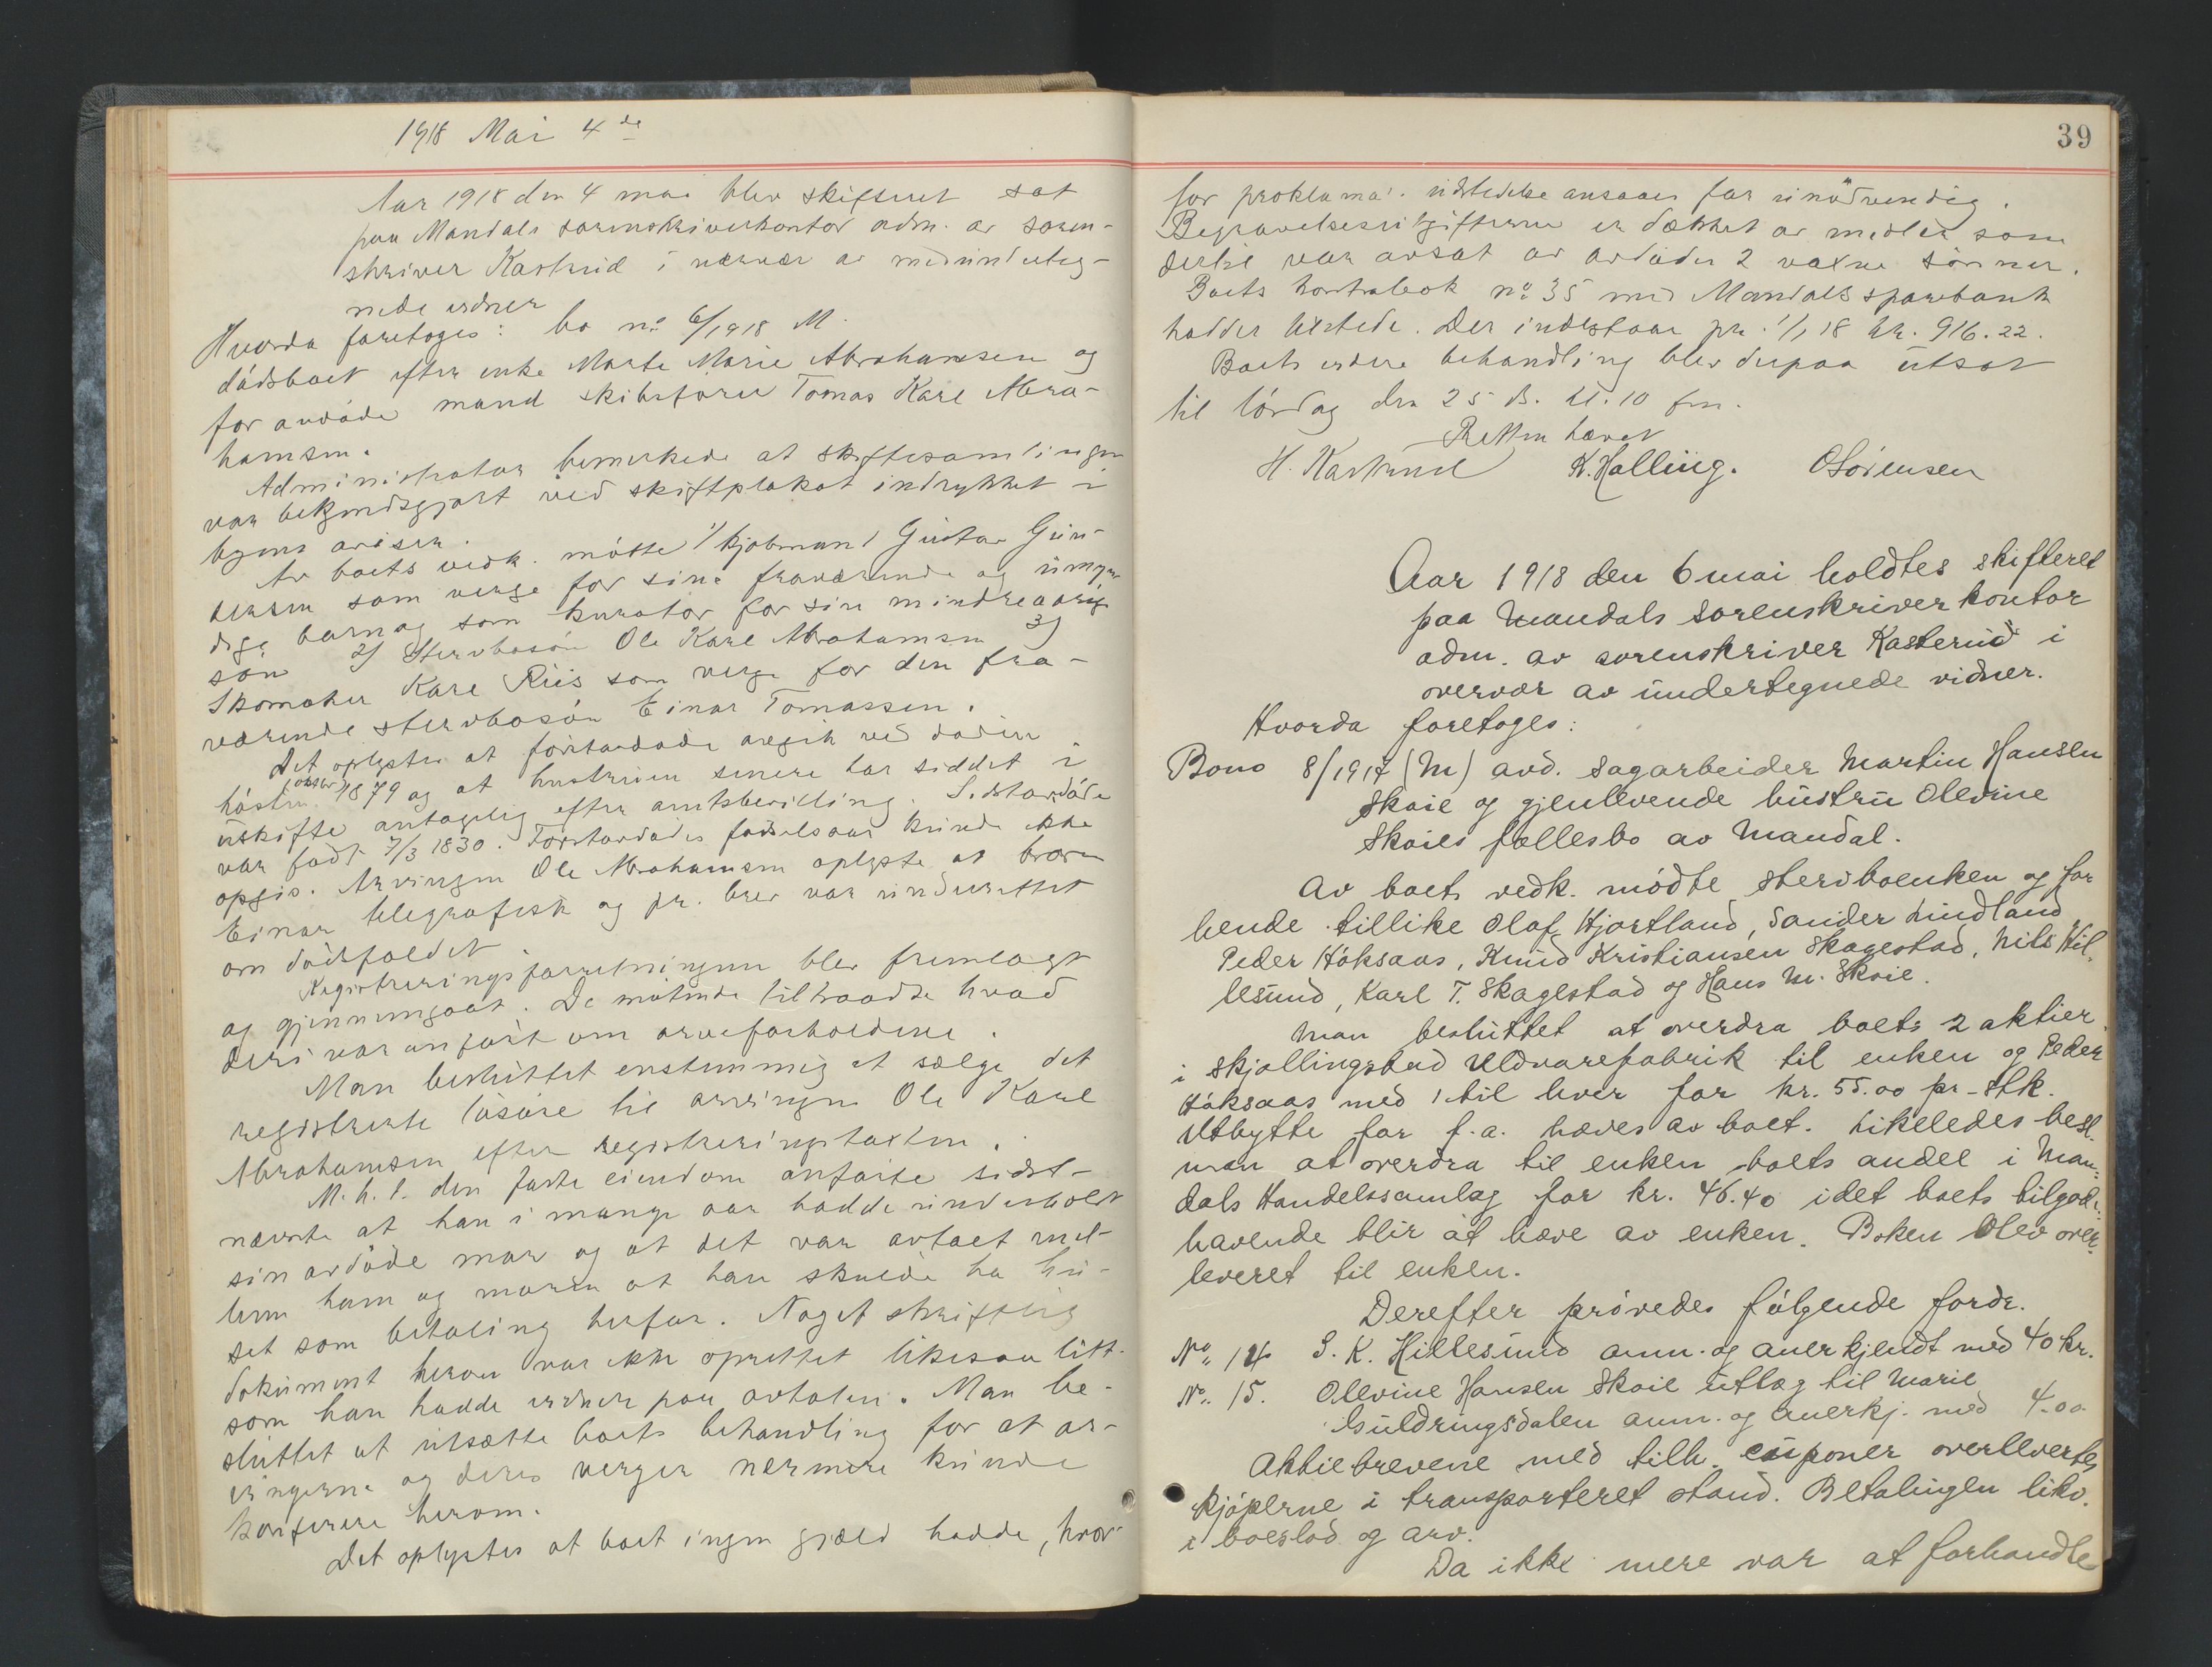 1918 Mai 4de
Aar 1918 den 4 mai blev skifteret sat
paa Mandals sorenskriverkontor adm. av soren-
skriver Kasterud i nærvær av medunderteg-
nede vidner
Hvorda foretoges: bo no 6/1918 M.
dødsboet efter enke Marte Marie Abrahamsen og
foravdøde mand skibsfører Tomas Karl Abra-
hamsen.
Administrator bemerkede at skiftesamlingen
var bekjendtgjort ved skifteplakat indrykket i
byens aviser.
Av boets vedk. møtte 1/ kjøbmand Gustav Gun-
dersen som verge for sine fraværende og umyn
dige barn og som kurator for sin mindreaarige
søn 2/ Stervbosøn Ole Karl Abrahamsen 3)
Skomaker Karl Riis som verge for den fra-
værende stervbosøn Einar Tomassen.
Det oplystes at førstavdøde avgik ved døden
høsten (oktober) 1879 og at hustruen senere har siddet i
uskifte antagelig efter amtsbevilling. Sidstavdøde
var født 7/3 1830. Førstavdødes fødselsaar kunde ikke
opgis. Arvingen Ole Abrahamsen oplyste at broren
Einar telegrafisk og pr. brev var underrettet
om dødsfaldet.
Registreringsforretningen blev fremlagt
og gjennemgaat. De møtende tiltraadte hvad
deri var anført om arveforholdene.
Man besluttet enstemmig at sælge det
registrerte løsøre til arvingen Ole Karl
Abrahamsen efter registreringstaxten.
M. h. t. den faste eiendom anførte sidst-
nævnte at han i mange aar hadde underholdt
sin avdøde mor og at det var avtalt mel-
lem ham og moren at han skulde ha hu-
set som betaling herfor. Noget skriftlig
dokument herom var ikke oprettet likesaa litt-
som han hadde vidner paa avtalen. Man be-
sluttet at utsætte boets behandling for at ar-
vingerne og deres verger nærmere kunde
konferere herom.
Det oplystes at boet ingen gjæld hadde, hvor-
39
for proklama: utstedelse ansaaes for unødvendig.
Begravelsesutgifterne er dækket av midler som
dertil var avsat av avdødes 2 voxne sønner.
Boets kontrabok no 35 med Mandals sparebank
hadder tilstede. Der indestaar pr. 1/1 18 kr. 916.22.
Boets videre behandling blev derpaa utsat
til lördag den 25 ds. kl. 10 fm.
Retten hævet
H. Kasterud K. Halling. O Sörensen
Aar 1918 den 6 mai holdtes skifteret
paa Mandals sorenskriverkontor
adm. av sorenskriver Kasterud i
overvær av undertegnede vidner.
Hvorda foretoges:
Bono 8/1917 (M) avd. sagarbeider Martin Hansen
Skoie og gjenlevende hustru Olevine
Skoies fællesbo av Mandal.
Av boets vedk. mödte stervboenken og for
hende tillike Olaf Hjortland, Sander Lindland
Peder Höksaas, Knud Kristiansen Skagestad, Nils Hil-
lesund, Karl T. Skagestad og Hans M. Skoie.
Man besluttet at overdra boets 2 aktier
i Skjollingstad Uldvarefabrik til enken og Peder
Höksaas med 1 til hver for kr. 55.00 pr-stk.
Utbytte for f.a. hæves av boet. Likeledes besl.
man at overdra til enken boets andel i Man-
dals Handelssamlag for kr. 46.40 idet boets tilgode-
havende blir at hæve av enken. Boken blev over-
leveret til enken.
Derefter prövedes fölgende fordr.
No. 14 S. K. Hillesund anm. og anerkjendt med 40 kr.
No. 15. Olevine Hansen Skoie utlæg til Marie
Guldringsdalen anm. og anerkj. med 4.00
Aktiebrevene med tilh. cuponer overleveres
kjöperne i transporteret stand. Betalingen likv.
i boeslod og arv.
Da ikke mere var at forhandle